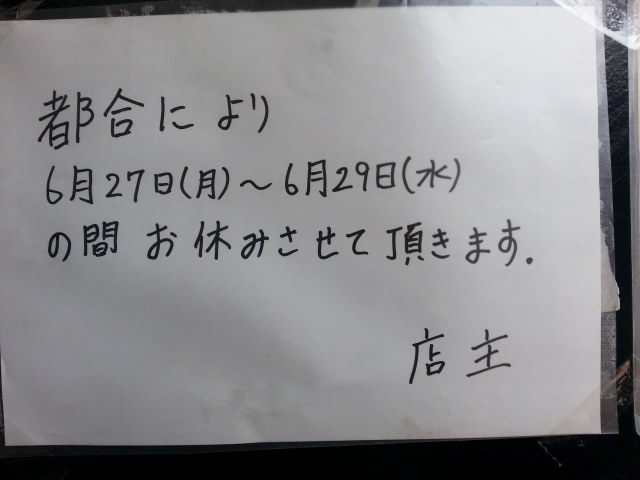 都合により
6月27日(月)～6月29日(水)
の間 お休みさせて頂きます.
店主